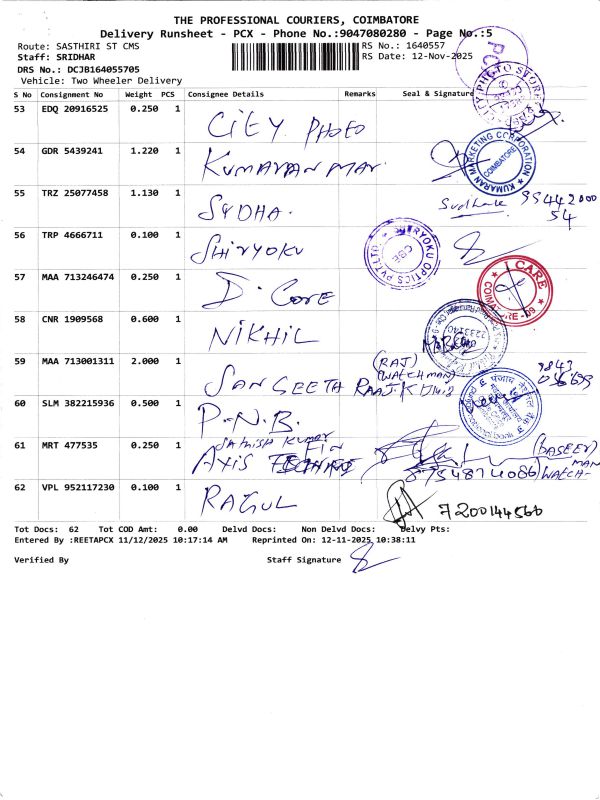 THE PROFESSIONAL COURIERS, COIMBATORE
Delivery Runsheet - PCX - Phone No.:9047080280 - Page No.:5
Route: SASTHIRI ST CMS
RS No.: 1640557
Staff: SRIDHAR
RS Date: 12-Nov-2025
DRS No.: DCJB164055705
Vehicle: Two Wheeler Delivery
S No Consignment No Weight PCS Consignee Details Remarks Seal & Signature
53 EDQ 20916525 0.250 1 CITY PHOTO
54 GDR 5439241 1.220 1 KUMARAN MAR.
KUMARAN MARKETING CORPORATION
COIMBATORE
55 TRZ 25077458 1.130 1 SUDHA. 99442000
54
56 TRP 4666711 0.100 1 SHIRYOKU
SHIRYOKU OPTICS PVT.LTD
CBE
57 MAA 713246474 0.250 1 I-CARE
I CARE
COIMBATORE-09
58 CNR 1909568 0.600 1 NIKHIL
59 MAA 713001311 2.000 1 SANGEETA (RAJ)
(WATCHMAN)
60 SLM 382215936 0.500 1 P.N.B.
61 MRT 477535 0.250 1 SATHISH KUMAR
AXIS (BASEER)
8754874086 WATCH-
MAN
62 VPL 952117230 0.100 1 RAGUL 7200144560
Tot Docs: 62 Tot COD Amt: 0.00 Delvd Docs: Non Delvd Docs: Delvy Pts:
Entered By :REETAPCX 11/12/2025 10:17:14 AM Reprinted On: 12-11-2025 10:38:11
Verified By Staff Signature